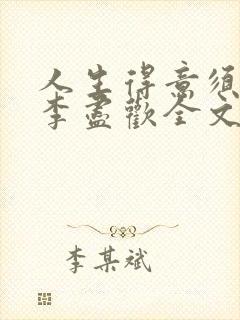 人生得意须
李盡歡全文
李某斌